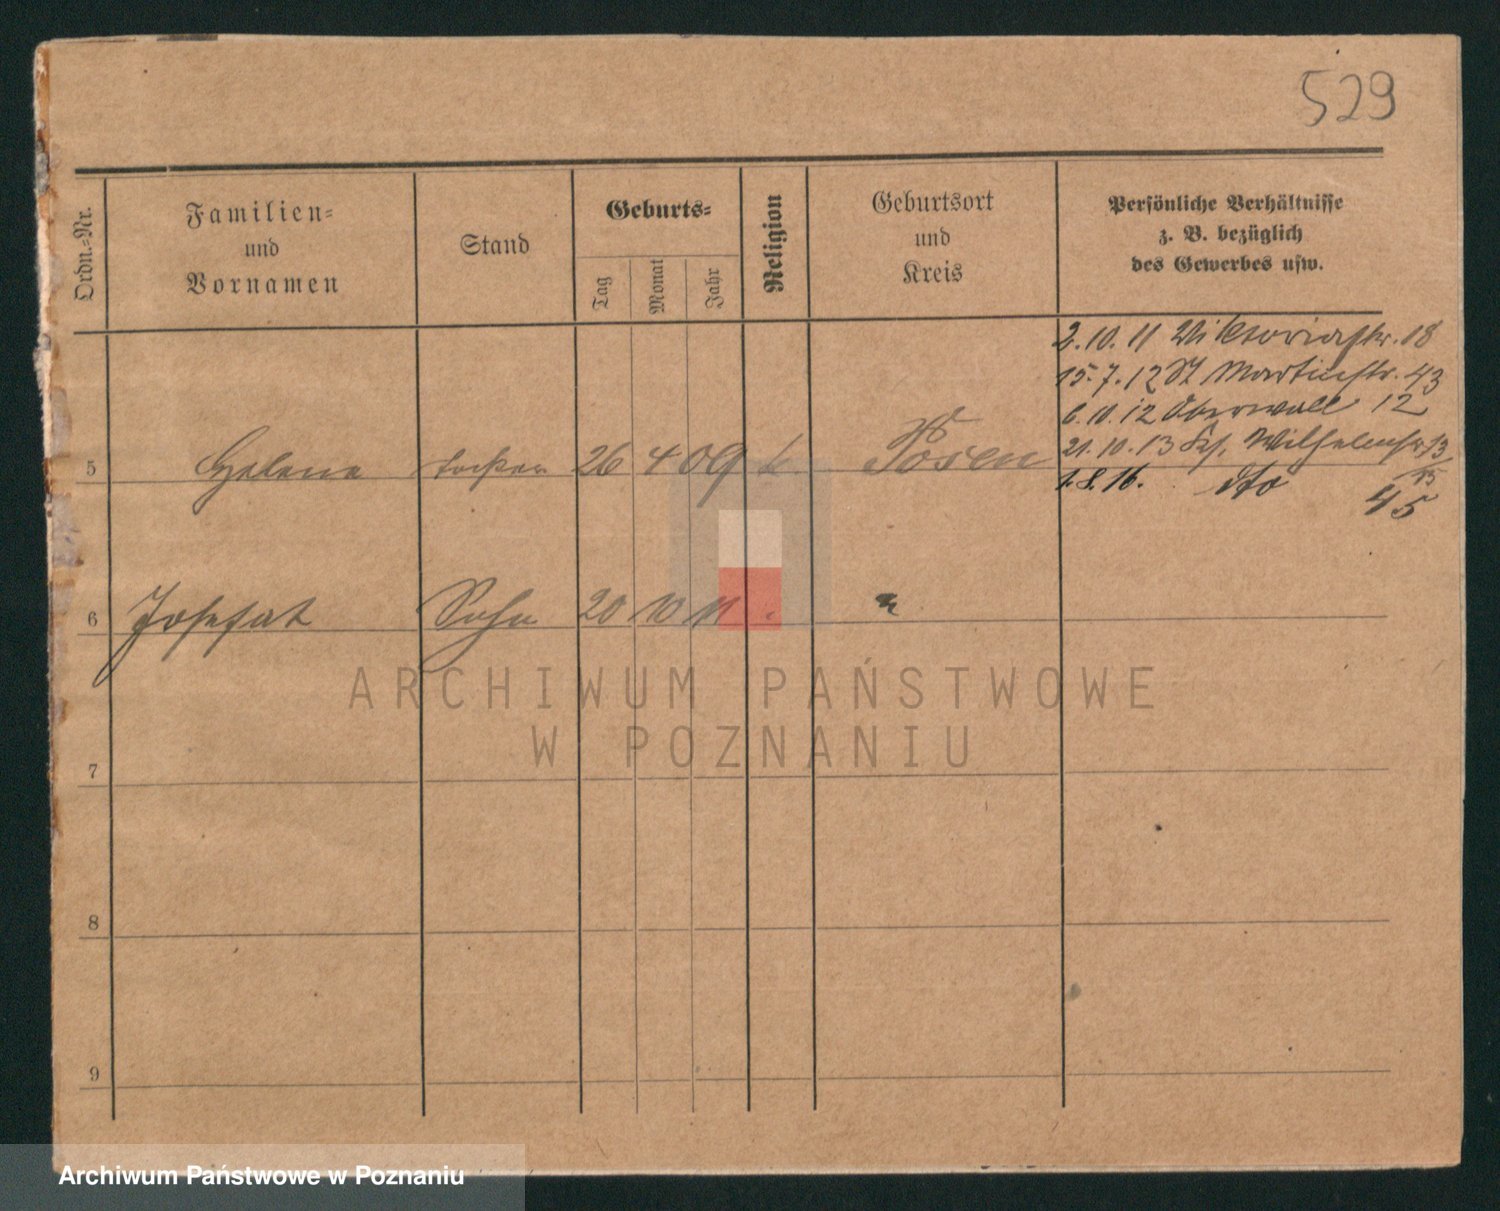 529
Ordn.-Nr.
Familien-
und
Vornamen
Stand
Geburts-
Tag
Monat
Jahr
Religion
Geburtsort
und
Kreis
Persönliche Verhältnisse
z. B. bezüglich
des Gewerbes usw.
2.10.11 Viktoriastr. 18
15.7.12 St Martinstr. 43
6.10.12 Oberwall 12
21.10.13 Wilhelmstr. 13
15
5 Helene Tochter 26 4 09 k. Posen
1.8.16. dto 45
6 Josefat Sohn 20 10 11 "
7
8
9
ARCHIWUM PAŃSTWOWE
W POZNANIU
Archiwum Państwowe w Poznaniu